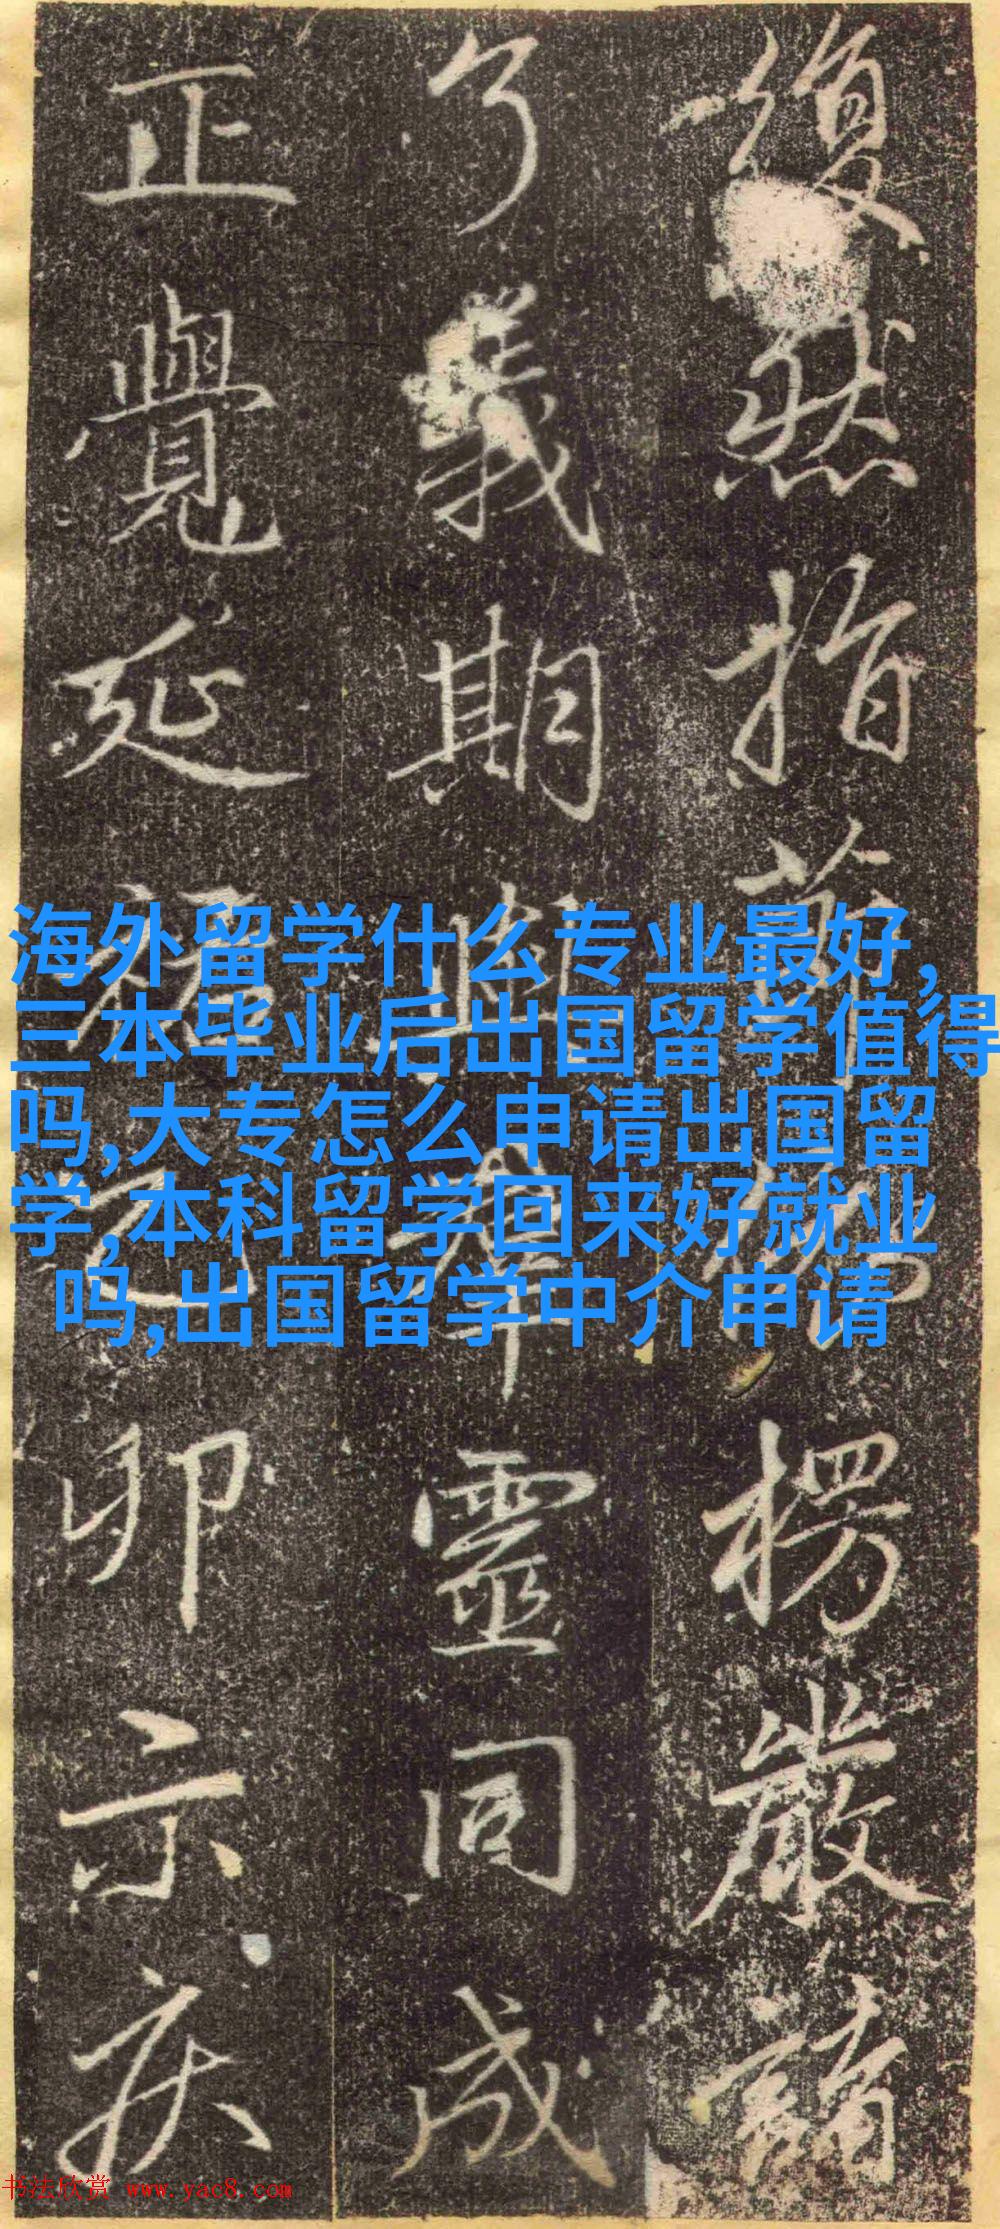 然指楞嚴誦
了義期與羣靈同成
正覺延卯示疾
海外留学什么专业最好,
三本毕业后出国留学值得
吗,大专怎么申请出国留
学,本科留学回来好就业
吗,出国留学中介申请
书法欣赏 www.yac8.com